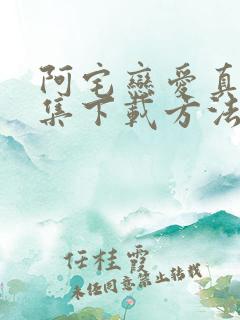 阿宅戀愛真
集下載方法
任桂霞
未经同意禁止转载